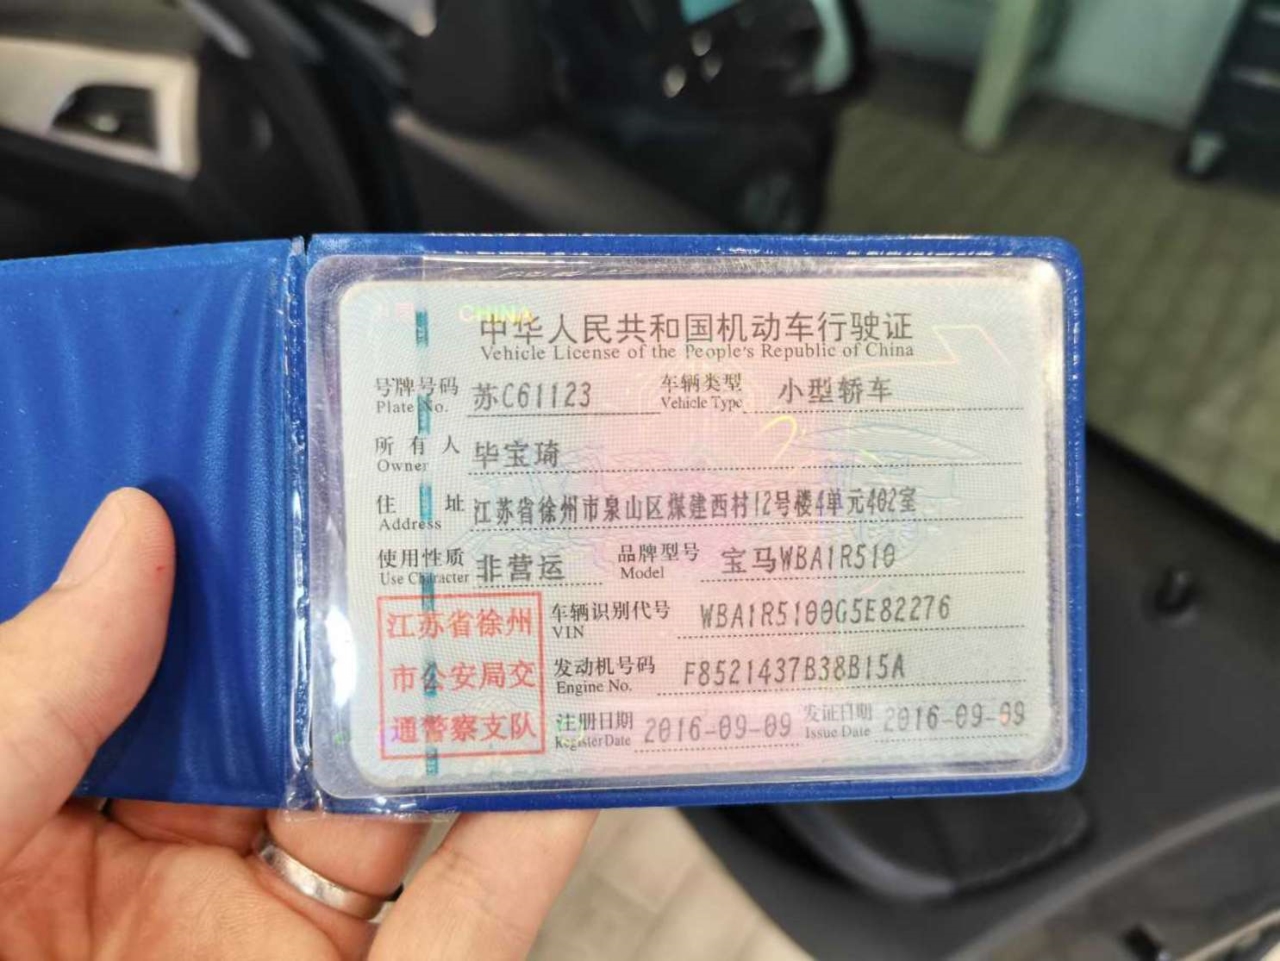 CHINA
中华人民共和国机动车行驶证
Vehicle License of the People's Republic of China
号牌号码 苏C61123 车辆类型 小型轿车
Plate No. Vehicle Type
所有人 毕宝琦
Owner
住址 江苏省徐州市泉山区煤建西村12号楼4单元402室
Address
使用性质 非营运 品牌型号 宝马WBA1R510
Use Character Model
江苏省徐州
市公安局交
通警察支队
车辆识别代号 WBA1R5100G5E82276
VIN
发动机号码 F8521437B38B15A
Engine No.
注册日期 2016-09-09 发证日期 2016-09-09
Register Date Issue Date